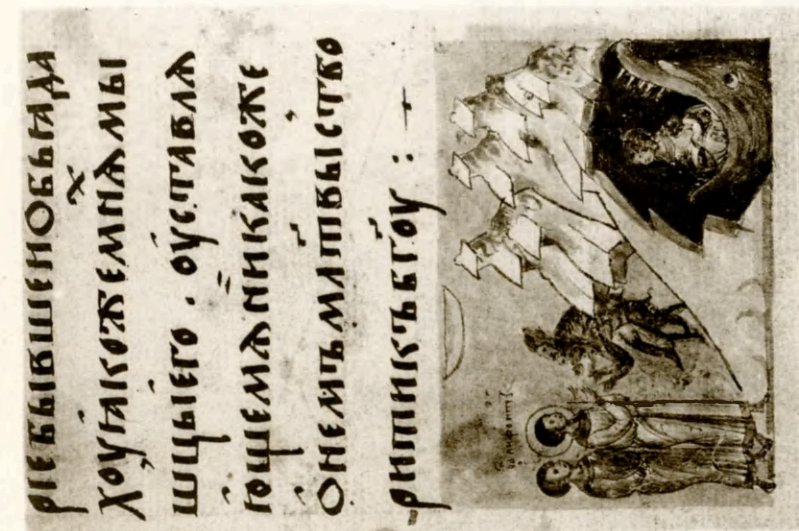 рїе бывшен обьꙗда
хоуꙗкожемнѧмы
шцыѥго · оуставлѧ
ющемѧникакоже
ѻнемъ млтвы ство
рити къ бгоу : +